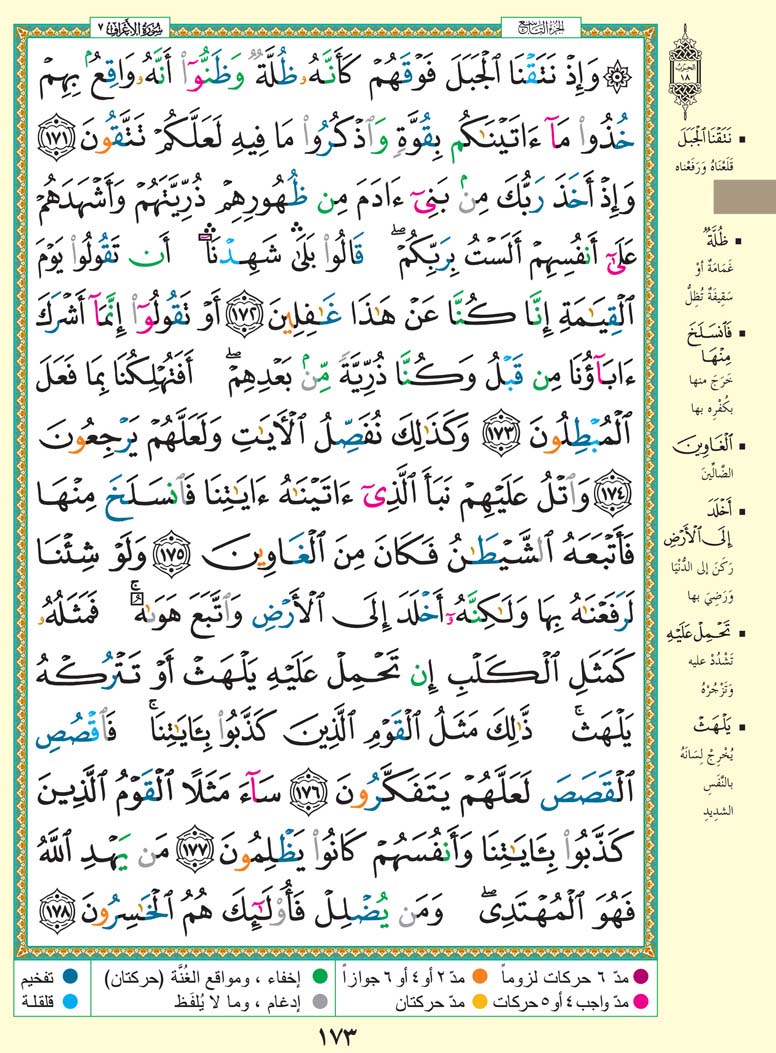 سُورَةُ الأَعْرَافِ ٧
الجُزْءُ التَّاسِعُ
۞ وَإِذْ نَتَقْنَا ٱلْجَبَلَ فَوْقَهُمْ كَأَنَّهُۥ ظُلَّةٌۭ وَظَنُّوٓا۟ أَنَّهُۥ وَاقِعٌۢ بِهِمْ
خُذُوا۟ مَآ ءَاتَيْنَـٰكُم بِقُوَّةٍۢ وَٱذْكُرُوا۟ مَا فِيهِ لَعَلَّكُمْ تَتَّقُونَ ١٧١
وَإِذْ أَخَذَ رَبُّكَ مِنۢ بَنِىٓ ءَادَمَ مِن ظُهُورِهِمْ ذُرِّيَّتَهُمْ وَأَشْهَدَهُمْ
عَلَىٰٓ أَنفُسِهِمْ أَلَسْتُ بِرَبِّكُمْ ۖ قَالُوا۟ بَلَىٰ ۛ شَهِدْنَآ ۛ أَن تَقُولُوا۟ يَوْمَ
ٱلْقِيَـٰمَةِ إِنَّا كُنَّا عَنْ هَـٰذَا غَـٰفِلِينَ ١٧٢ أَوْ تَقُولُوٓا۟ إِنَّمَآ أَشْرَكَ
ءَابَآؤُنَا مِن قَبْلُ وَكُنَّا ذُرِّيَّةًۭ مِّنۢ بَعْدِهِمْ ۖ أَفَتُهْلِكُنَا بِمَا فَعَلَ
ٱلْمُبْطِلُونَ ١٧٣ وَكَذَٰلِكَ نُفَصِّلُ ٱلْـَٔايَـٰتِ وَلَعَلَّهُمْ يَرْجِعُونَ
١٧٤ وَٱتْلُ عَلَيْهِمْ نَبَأَ ٱلَّذِىٓ ءَاتَيْنَـٰهُ ءَايَـٰتِنَا فَٱنسَلَخَ مِنْهَا
فَأَتْبَعَهُ ٱلشَّيْطَـٰنُ فَكَانَ مِنَ ٱلْغَاوِينَ ١٧٥ وَلَوْ شِئْنَا
لَرَفَعْنَـٰهُ بِهَا وَلَـٰكِنَّهُۥٓ أَخْلَدَ إِلَى ٱلْأَرْضِ وَٱتَّبَعَ هَوَىٰهُ ۚ فَمَثَلُهُۥ
كَمَثَلِ ٱلْكَلْبِ إِن تَحْمِلْ عَلَيْهِ يَلْهَثْ أَوْ تَتْرُكْهُ
يَلْهَث ۚ ذَّٰلِكَ مَثَلُ ٱلْقَوْمِ ٱلَّذِينَ كَذَّبُوا۟ بِـَٔايَـٰتِنَا ۚ فَٱقْصُصِ
ٱلْقَصَصَ لَعَلَّهُمْ يَتَفَكَّرُونَ ١٧٦ سَآءَ مَثَلًا ٱلْقَوْمُ ٱلَّذِينَ
كَذَّبُوا۟ بِـَٔايَـٰتِنَا وَأَنفُسَهُمْ كَانُوا۟ يَظْلِمُونَ ١٧٧ مَن يَهْدِ ٱللَّهُ
فَهُوَ ٱلْمُهْتَدِى ۖ وَمَن يُضْلِلْ فَأُو۟لَـٰٓئِكَ هُمُ ٱلْخَـٰسِرُونَ ١٧٨
الحزب
١٨
▪ نَتَقْنَا ٱلْجَبَلَ
قَلَعْنَاهُ وَرَفَعْنَاه
▪ ظُلَّةٌ
غَمَامَةٌ أوْ
سَقِيفَةٌ تُظِلُّ
▪ فَٱنسَلَخَ
مِنْهَا
خَرَجَ منها
بكُفْرِه بها
▪ ٱلْغَاوِينَ
الضَّالِّينَ
▪ أَخْلَدَ
إِلَى ٱلْأَرْضِ
رَكَنَ إلى الدُّنْيَا
وَرَضِيَ بها
▪ تَحْمِلْ عَلَيْهِ
تَشْدُدْ عليه
وَتَزْجُرْهُ
▪ يَلْهَثْ
يُخْرِجْ لِسَانَهُ
بالنَّفَسِ
الشديدِ
مدّ ٦ حركات لزوماً
مدّ ٢ أو ٤ أو ٦ جوازاً
إخفاء ، ومواقع الغُنَّة (حركتان)
تفخيم
مدّ واجب ٤ أو ٥ حركات
مدّ حركتان
إدغام ، وما لا يُلفَظ
قلقلة
١٧٣